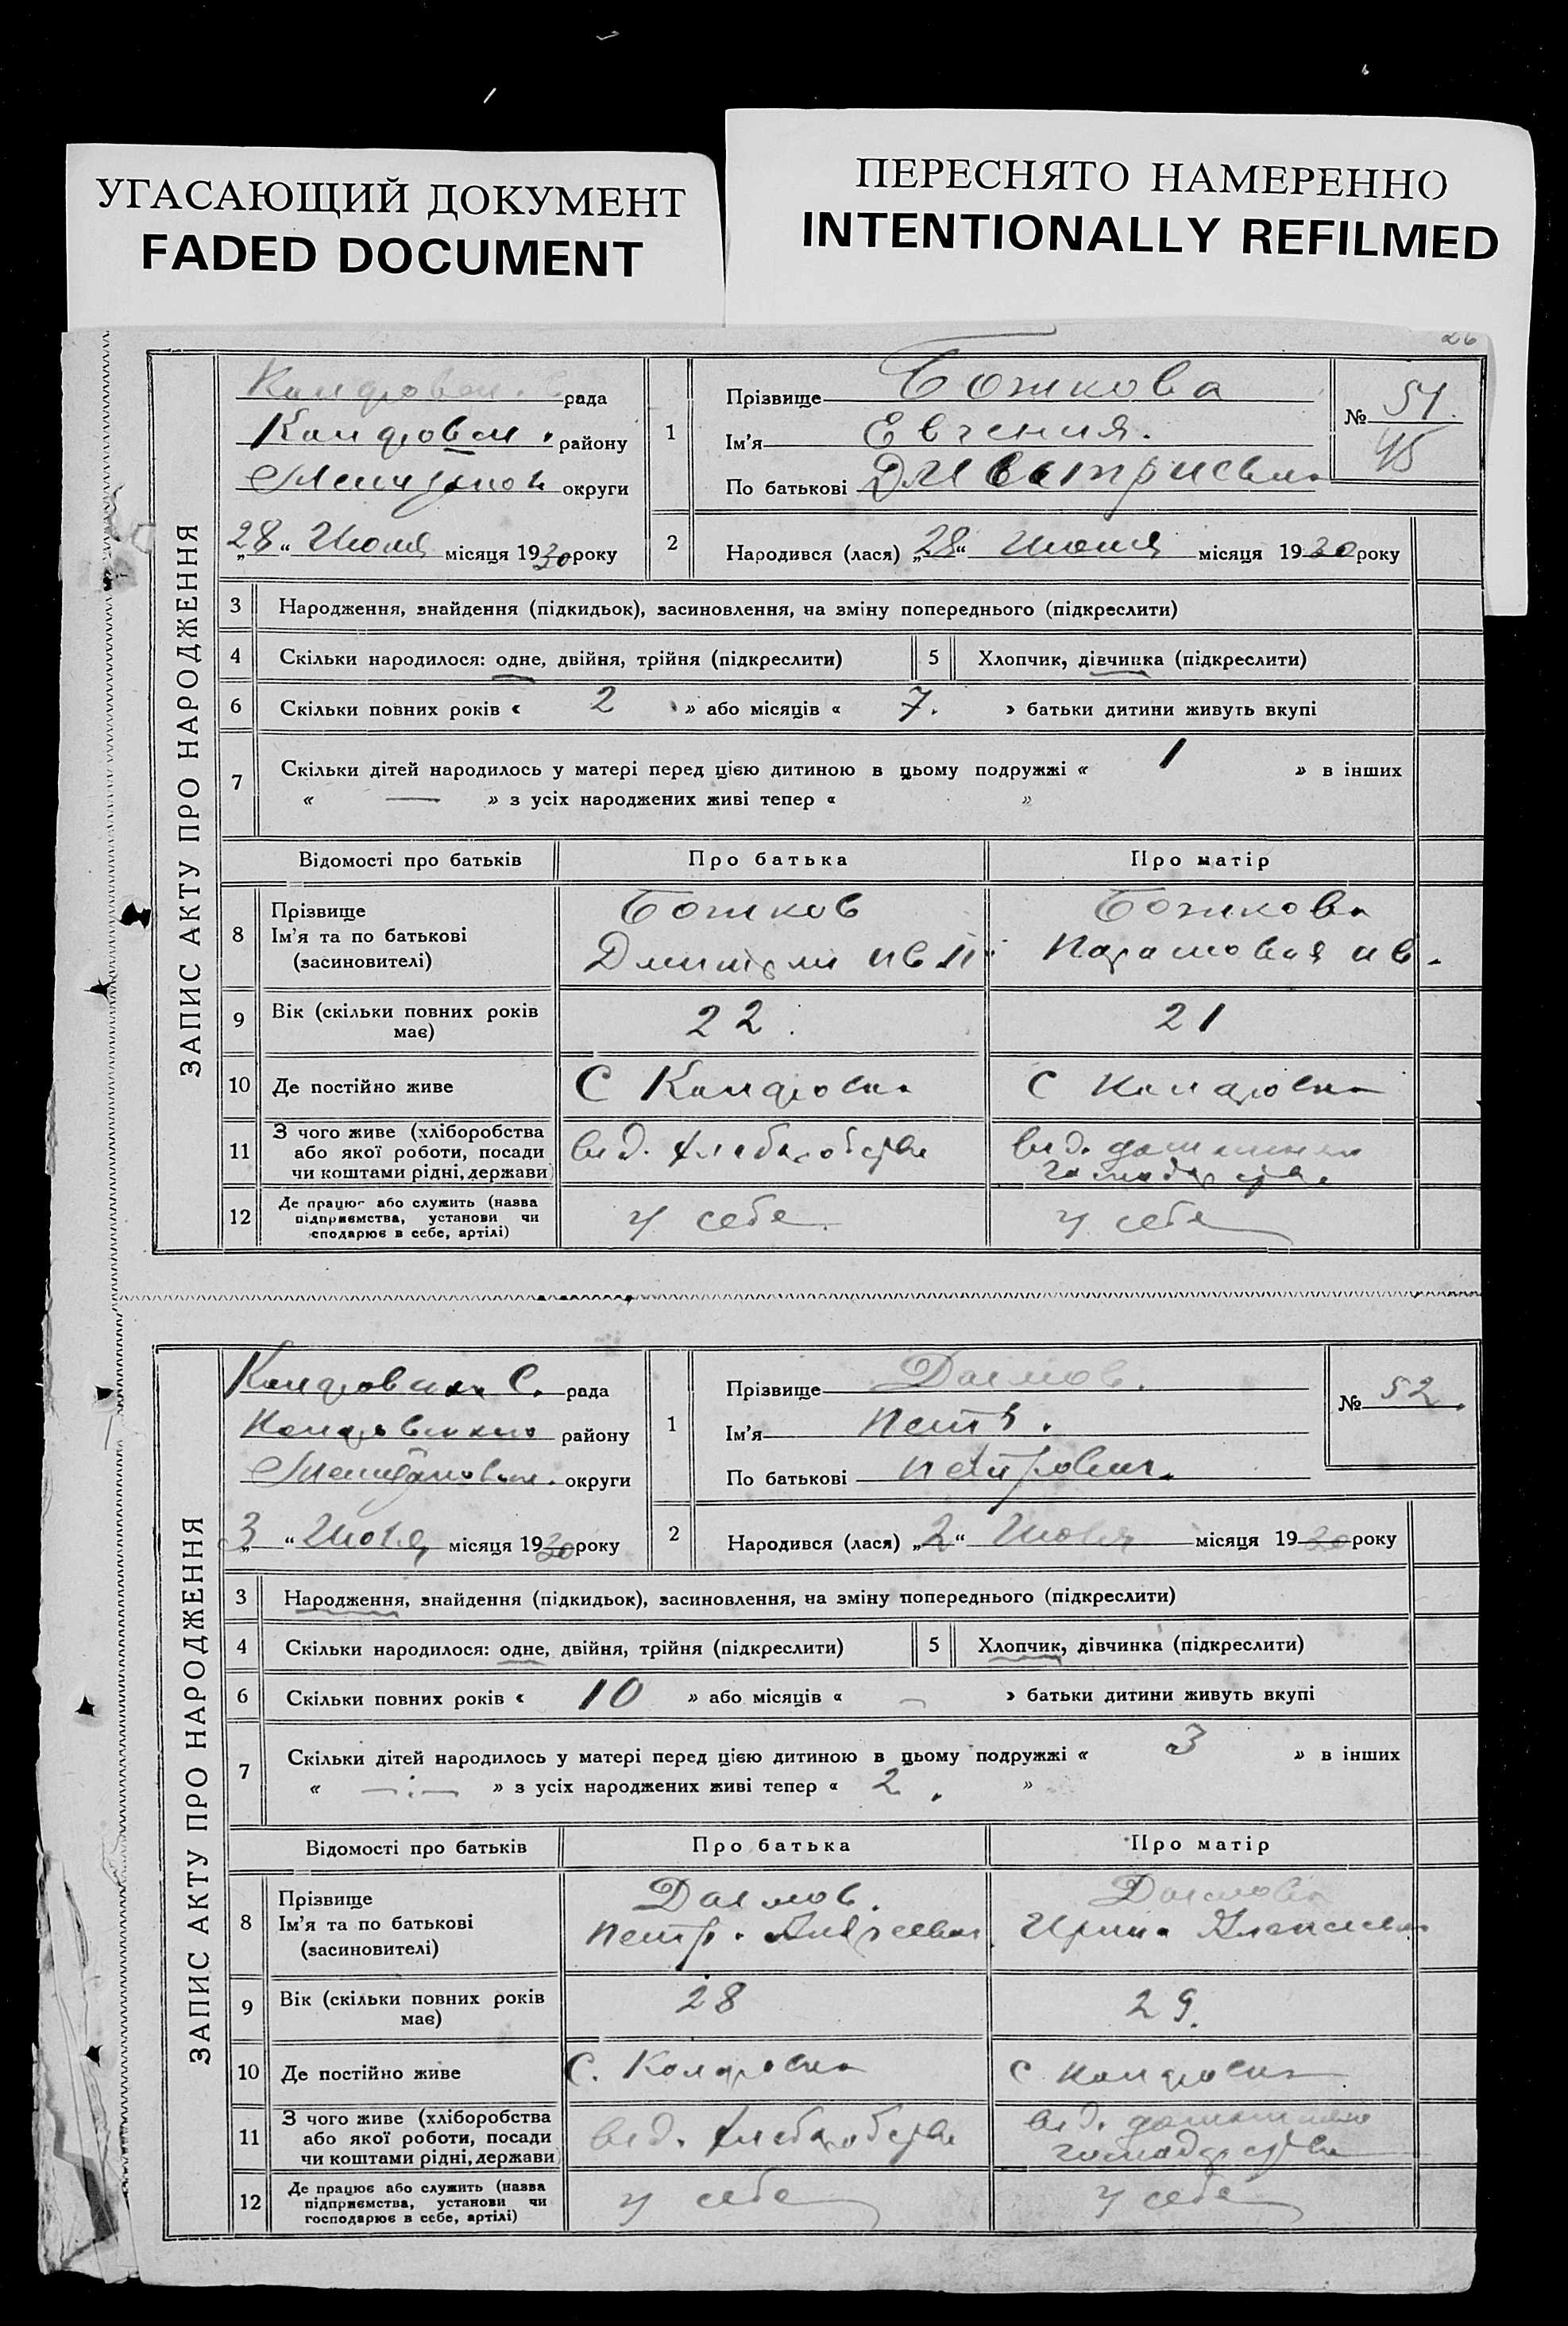 УГАСАЮЩИЙ ДОКУМЕНТ
FADED DOCUMENT
ПЕРЕСНЯТО НАМЕРЕННО
INTENTIONALLY REFILMED
26
ЗАПИС АКТУ ПРО НАРОДЖЕННЯ
рада
району
округи
„28“ Июня місяця 1930 року
1
Прізвище Божкова
Ім'я Евгения.
По батькові
№ 51.
45
2 Народився (лася) „28“ Июня місяця 1930 року
3 Народження, знайдення (підкидьок), засиновлення, на зміну попереднього (підкреслити)
4 Скільки народилося: одне, двійня, трійня (підкреслити) 5 Хлопчик, дівчинка (підкреслити)
6 Скільки повних років « 2 » або місяців « 7. » батьки дитини живуть вкупі
7 Скільки дітей народилось у матері перед цією дитиною в цьому подружжі « 1 » в інших
« — » з усіх народжених живі тепер « »
Відомості про батьків Про батька Про матір
8 Прізвище Божков Божкова
Ім'я та по батькові Дмитри Ив. Парасковья Ив.
(засиновителі)
9 Вік (скільки повних років має) 22. 21
10 Де постійно живе С С
11 З чого живе (хліборобства або якої роботи, посади чи коштами рідні, держави) вид.
12 Де працює або служить (назва підприємства, установи чи сподарює в себе, артілі) у себе у себе
ЗАПИС АКТУ ПРО НАРОДЖЕННЯ
С. рада
району
округи
„3“ місяця 1930 року
1
Прізвище
Ім'я Петр.
По батькові Петрович.
№ 52.
2 Народився (лася) „2“ місяця 1930 року
3 Народження, знайдення (підкидьок), засиновлення, на зміну попереднього (підкреслити)
4 Скільки народилося: одне, двійня, трійня (підкреслити) 5 Хлопчик, дівчинка (підкреслити)
6 Скільки повних років « 10 » або місяців « — » батьки дитини живуть вкупі
7 Скільки дітей народилось у матері перед цією дитиною в цьому подружжі « 3 » в інших
« —.— » з усіх народжених живі тепер « 2. »
Відомості про батьків Про батька Про матір
8 Прізвище
Ім'я та по батькові Петр. Андреевич Ирина
(засиновителі)
9 Вік (скільки повних років має) 28 29.
10 Де постійно живе С. С
11 З чого живе (хліборобства або якої роботи, посади чи коштами рідні, держави)
12 Де працює або служить (назва підприємства, установи чи господарює в себе, артілі) у себе у себе